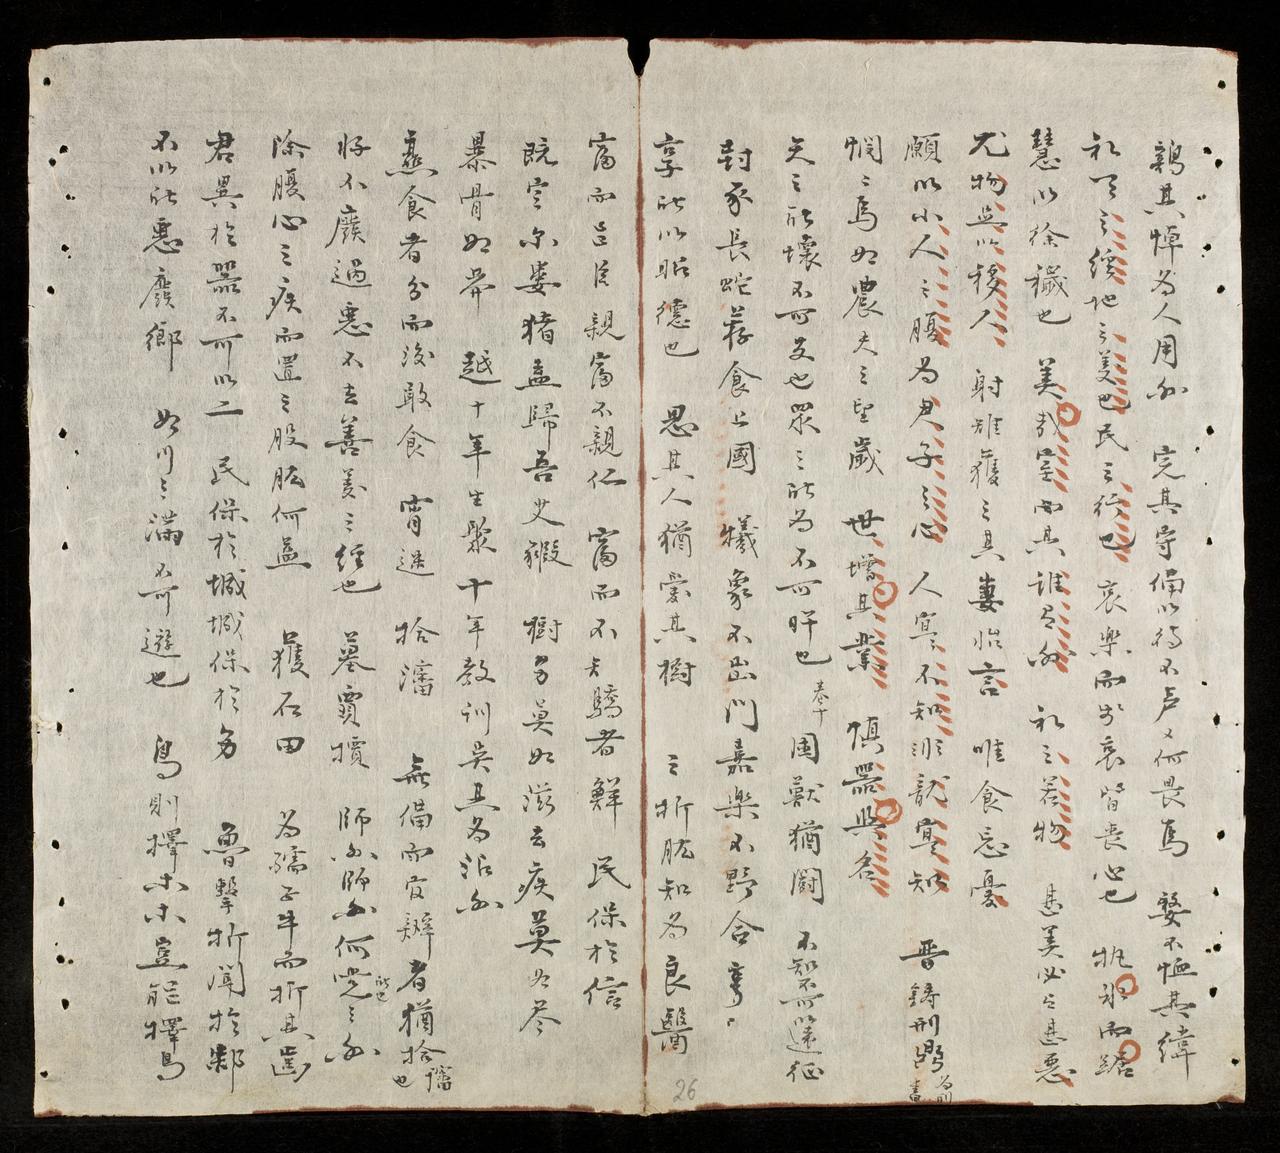 鷄其憚為人用乎　完其守備以待不虞又何畏焉　嫠不恤其緯
礼天之經地之義也民之行也　哀樂而樂哀皆喪心也　抱冰而踞
慧以除穢也　美哉室而其誰有乎　礼之善物　甚美必有甚惡
尤物足以移人　射雉獲之其妻始言　唯食忘憂
願以小人之腹為君子之心　人實不知非龍實知　晋鑄刑鼎為刑書
惘惘焉如農夫之望歲　世增其業　慎器與名
天之所壞不可支也眾之所為不可奸也卷十　困獸猶鬪　不知不可以遠征
封豕長蛇荐食上國　犧象不出門嘉樂不野合　享
享所以昭德也　思其人猶愛其樹　三折肱知為良醫
富而 親富不親仁　富而不驕者鮮　民保於信
既定尔婁猪盍歸吾艾豭　樹德莫如滋去疾莫如盡
暴骨如莽　越十年生聚十年教訓吳其為沼乎
熟食者分而後敢食　宵迷　拾瀋　無備而官辦者猶拾瀋也
好不廢過惡不去善義之經也　墓賈櫝　師乎師乎何黨之乎
除腹心之疾而置之股肱何益　獲石田　為孺子牛而折其齒
君異於器不可以二　民保於城城保於德　魯擊柝聞於邾
不以所惡廢鄉　如川之滿不可遊也　鳥則擇木木豈能擇鳥
26